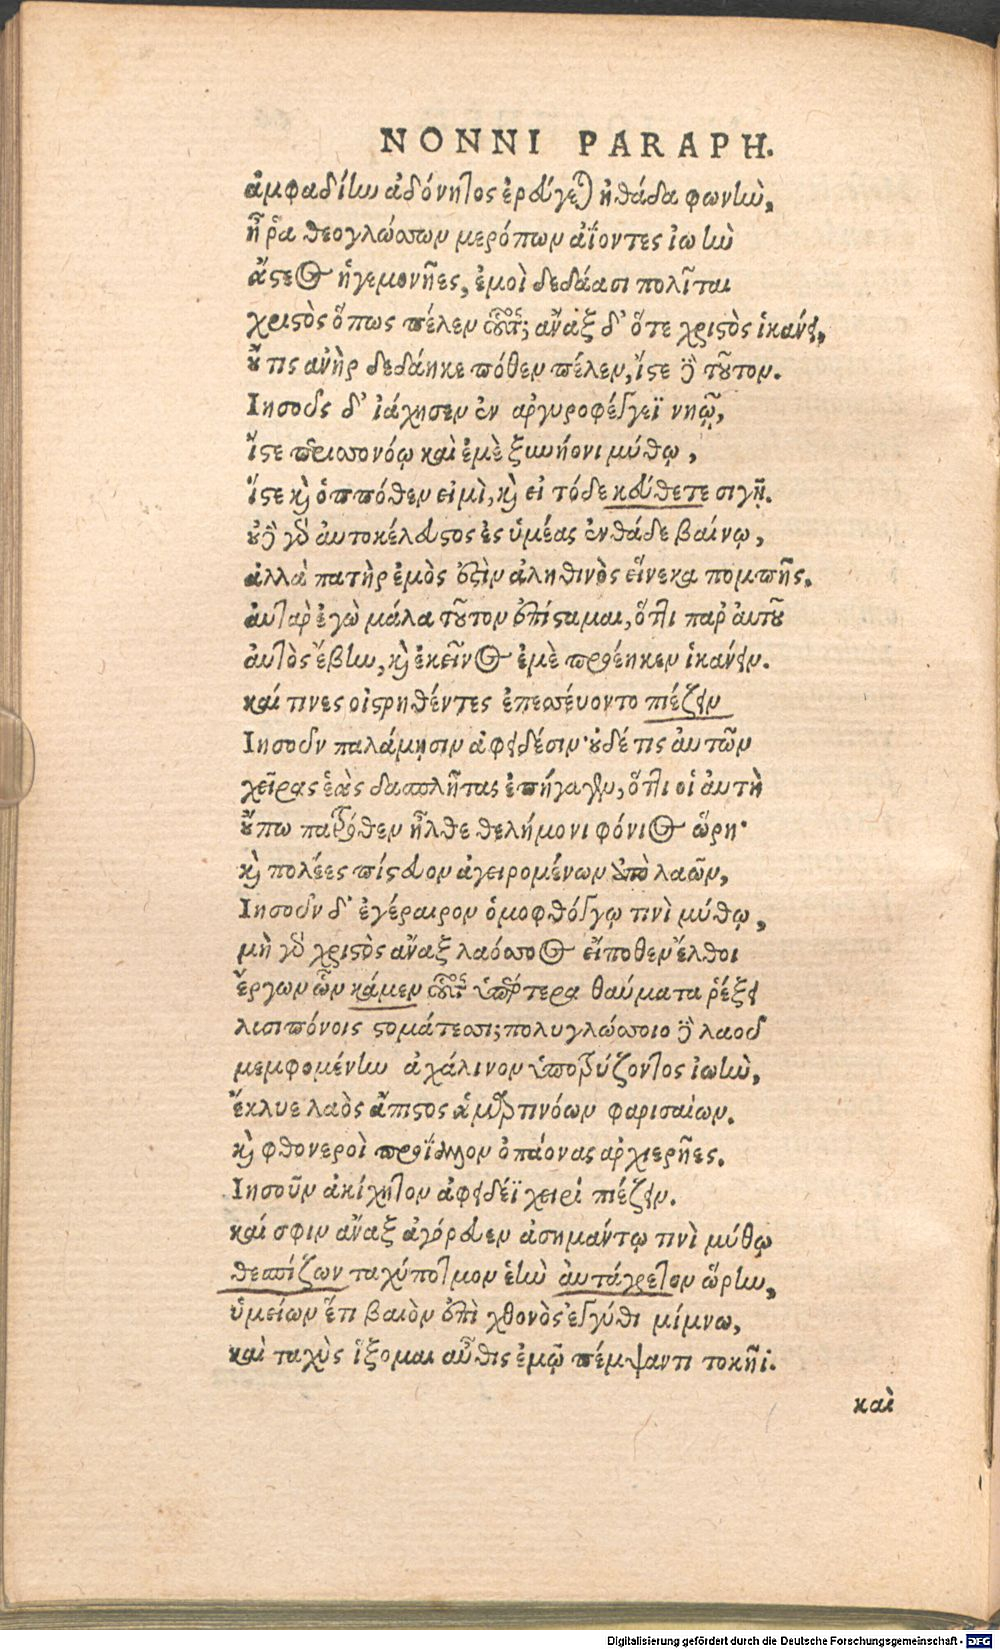 NONNI PARAPH.
ἀμφαδίην ἀδόνητος ἐρεύγεται ἠθάδα φωνὴν,
ἦ ῥα θεογλώσσων μερόπων ἀΐοντες ἰωὴν
ἄστεος ἡγεμονῆες, ἐμοὶ δεδάασι πολῖται
χριστὸς ὅπως πέλεν οὗτος; ἄναξ δ' ὅτε χριστὸς ἱκάνει,
οὔτις ἀνὴρ δεδάηκε πόθεν πέλεν, ἴστε δὲ τοῦτον.
Ιησοῦς δ' ἰάχησεν ἐν ἀργυροφέγγεϊ νηῷ,
ἴστε περισσονόῳ καὶ ἐμὲ ξυνήονι μύθῳ,
ἴστε καὶ ὁππόθεν εἰμὶ, καὶ εἰ τόδε κεύθετε σιγῇ.
οὐ δὲ γὰρ αὐτοκέλευστος ἐς ὑμέας ἐνθάδε βαίνω,
ἀλλὰ πατὴρ ἐμὸς ἐστὶν ἀληθινὸς εἵνεκα πομπῆς.
αὐτὰρ ἐγὼ μάλα τοῦτον ἐπίσταμαι, ὅττι παρ' αὐτοῦ
αὐτὸς ἔβην, καὶ ἐκεῖνος ἐμὲ προέηκεν ἱκάνειν.
καί τινες οἰστρηθέντες ἐπεσσέυοντο πιέζειν
Ιησοῦν παλάμησιν ἀφειδέσιν· οὐδέ τις αὐτῶν
χεῖρας ἑὰς δασπλῆτας ἐπήγαγεν, ὅττι οἱ αὐτὴ
οὔπω παρόθεν ἦλθε θελήμονι φόνιος ὥρη·
καὶ πολέες πίστευον ἀγειρομένων ὑπὸ λαῶν,
Ιησοῦν δ' ἐγέραιρον ὁμοφθόγγῳ τινὶ μύθῳ,
μὴ γὰρ χριστὸς ἄναξ λαόσσοος εἴποθεν ἔλθοι
ἔργων ὧν κάμεν οὗτος ὑπέρτερα θαύματα ῥέξει
λισιπόνοις στομάτεσσι; πολυγλώσσοιο δὲ λαοῦ
μεμφομένην ἀχάλινον ὑποτρύζοντος ἰωὴν,
ἔκλυε λαὸς ἄπιστος ἀμετρονόων φαρισαίων.
καὶ φθονεροὶ προΐαλλον ὀπάονας ἀρχιερῆες.
Ιησοῦν ἀκίχητον ἀφειδέϊ χειρὶ πιέζειν.
καί σφιν ἄναξ ἀγόρευεν ἀσημάντῳ τινὶ μύθῳ
θεσπίζων ταχύποτμον ἑὴν αὐτάγρετον ὥρην,
ὑμείων ἔτι βαιὸν ἐπὶ χθονὸς ἐγγύθι μίμνω,
καὶ ταχὺς ἵξομαι αὖθις ἐμῷ πέμψαντι τοκῆϊ.
καὶ
Digitalisierung gefördert durch die Deutsche Forschungsgemeinschaft - DFG